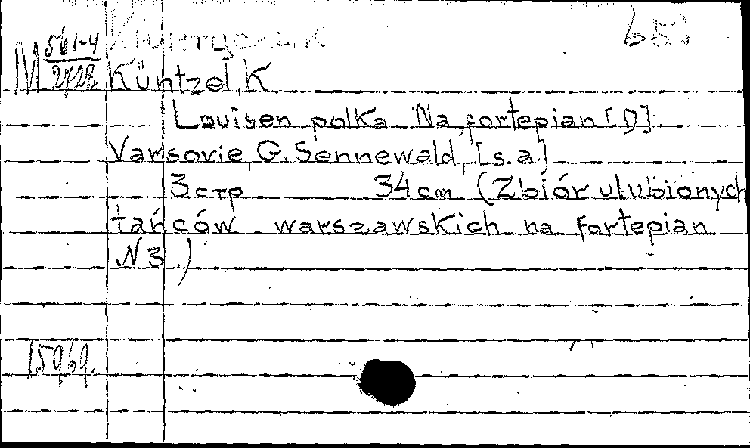 M 561-4/2728
Küntzel, K
Louisen polka. Na fortepian [D].
Varsovie, G. Sennewald, [s.a.]
3 стр 34 cm (Zbiór ulubionych
tańców warszawskich na fortepian
N3.)
15969.